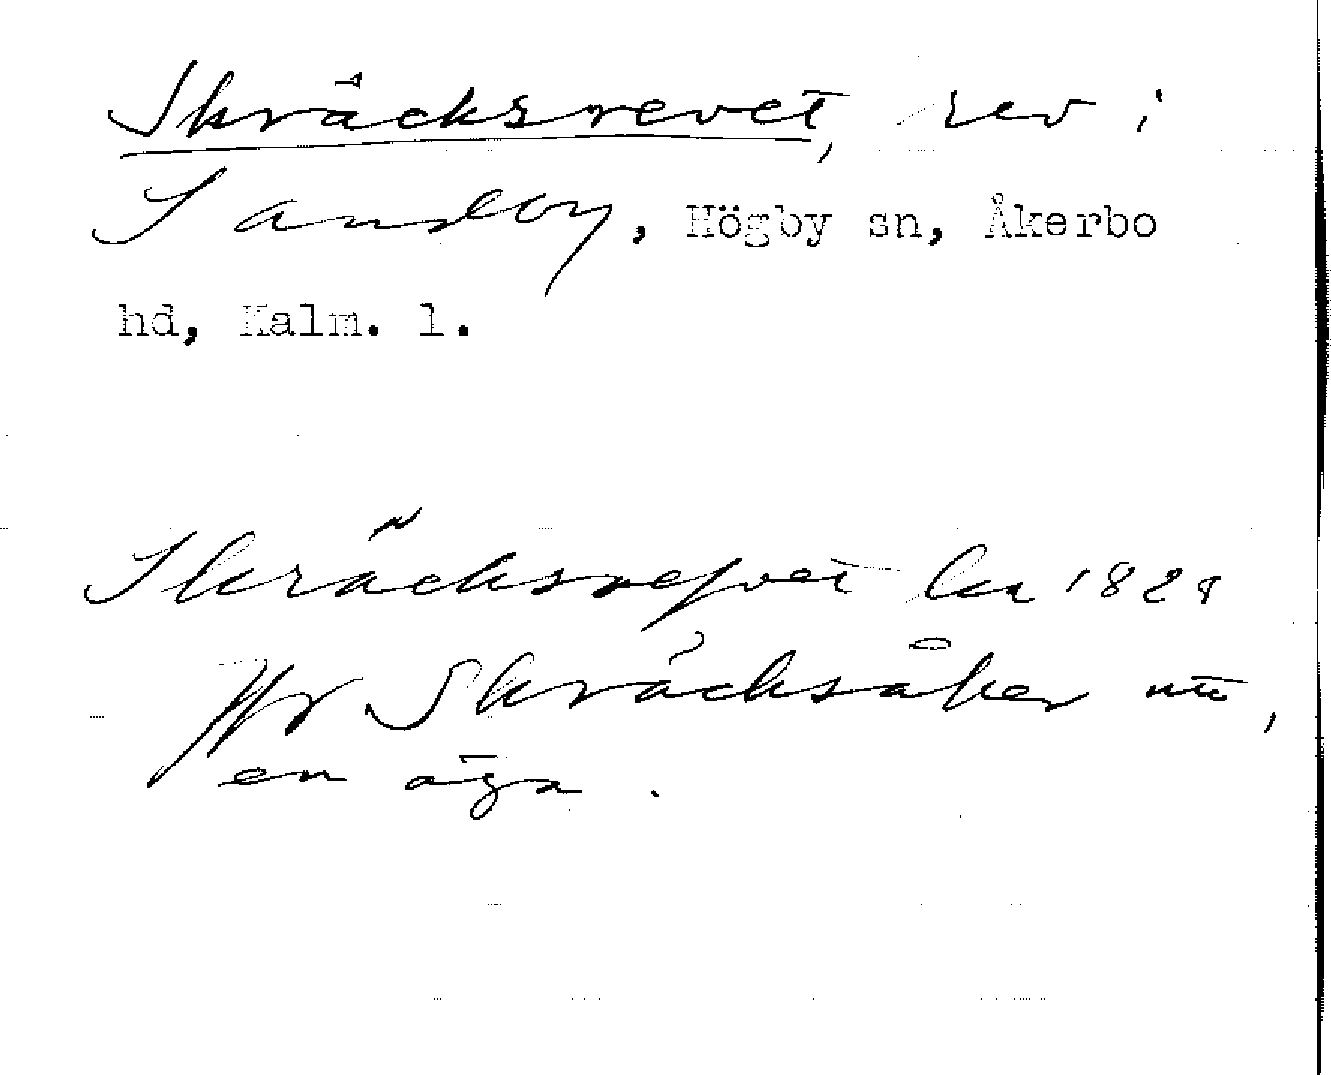 Skräcksrevet, rev i
Sandby, Högby sn, Åkerbo
hd, Kalm. l.
Skräcksrefvet lm 1828
Jfr Skräcksåker nu,
en äga.